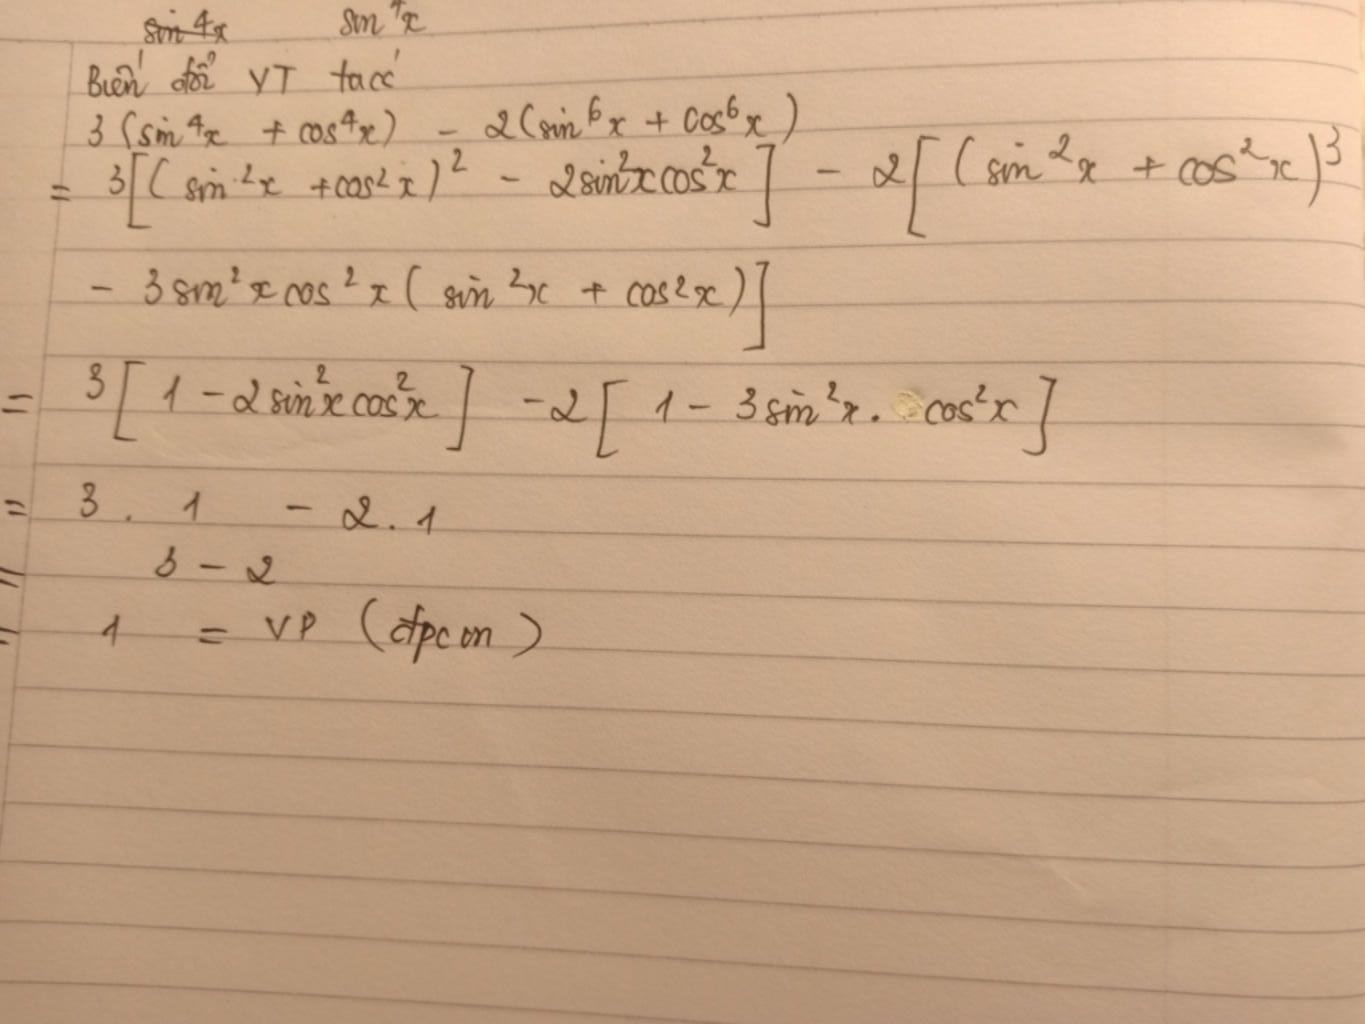 sin⁴x sin⁴x
Biến đổi VT ta có
3 (sin⁴x + cos⁴x) - 2(sin⁶x + cos⁶x)
= 3[(sin²x + cos²x)² - 2sin²xcos²x] - 2[(sin²x + cos²x)³
- 3sin²xcos²x(sin²x + cos²x)]
= 3[1 - 2sin²xcos²x] - 2[1 - 3sin²x. cos²x]
= 3 . 1 - 2.1
= 3 - 2
= 1 = VP (đpcm)